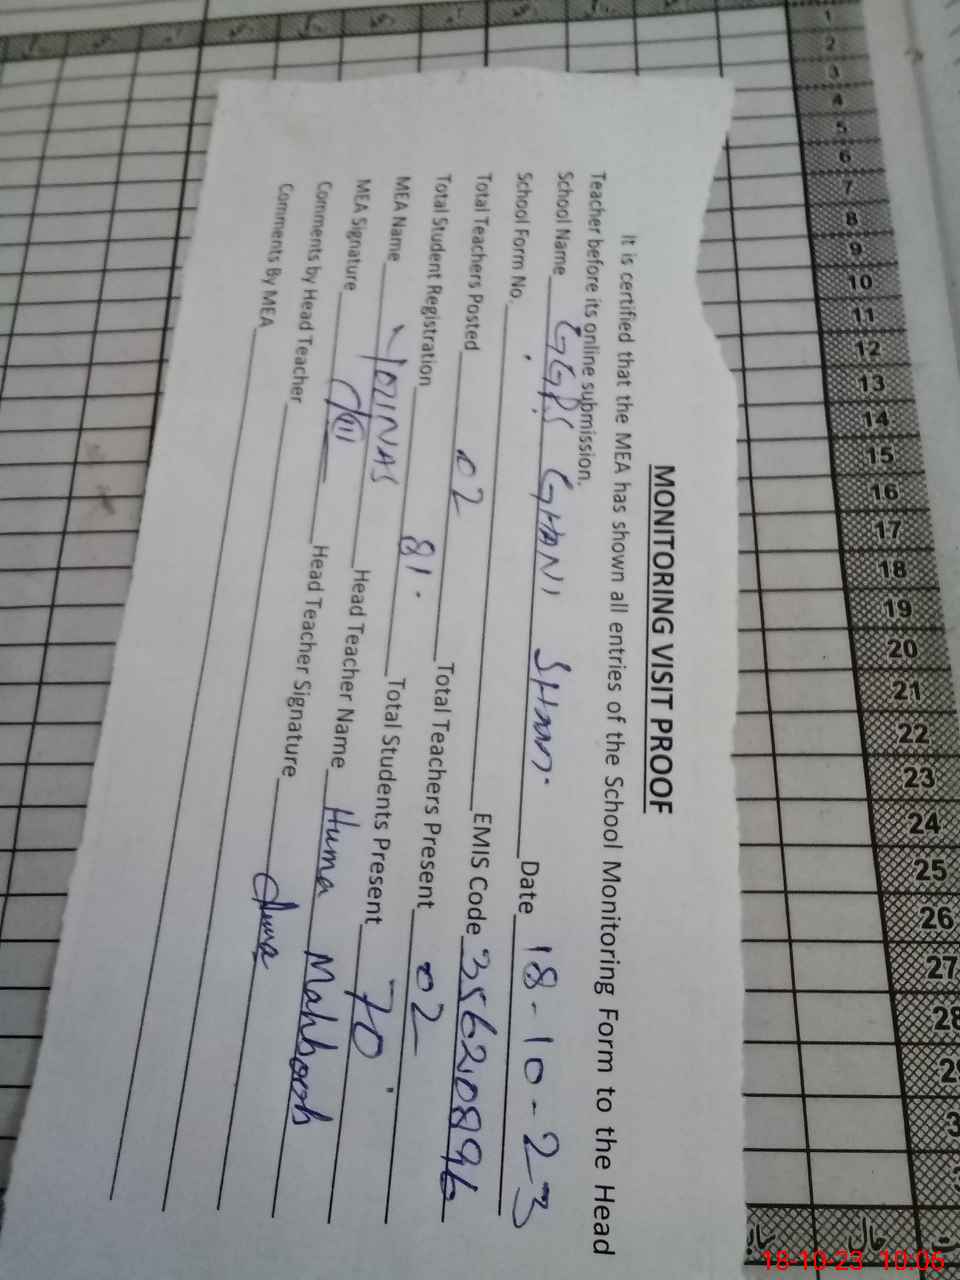 MONITORING VISIT PROOF
It is certified that the MEA has shown all entries of the School Monitoring Form to the Head
Teacher before its online submission.
School Name GGPS GHANI SHAH. Date 18-10-23
School Form No. EMIS Code 35620896
Total Teachers Posted 02 Total Teachers Present 02
Total Student Registration 81. Total Students Present 70
MEA Name Head Teacher Name Huma Mahboob
MEA Signature Head Teacher Signature Huma
Comments by Head Teacher
Comments By MEA
1
2
3
4
5
6
7
8
9
10
11
12
13
14
15
16
17
18
19
20
21
22
23
24
25
26
27
28
حال
18-10-23 10:06